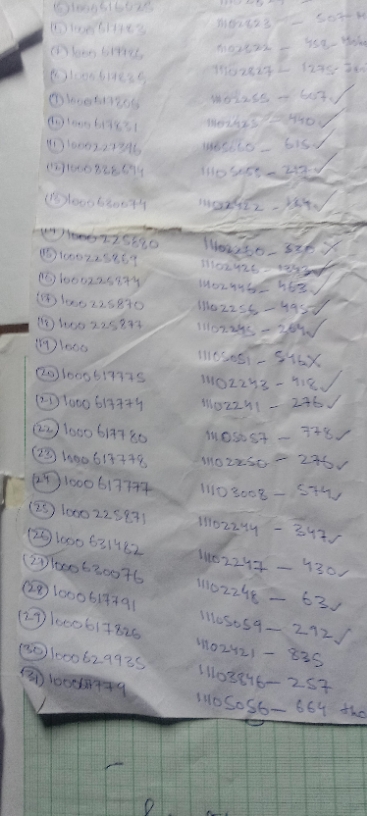 (5) 1000616025
(6) 1000617783 11102823 - 507-M
(7) 1000617786 11102822 - 458-
(8) 1000617836 11102827 - 1275-
(9) 1000617806 11102255 - 607 ✓
(10) 1000617831 11102425 - 440 ✓
(11) 1000227396 11105060 - 615 ✓
(12) 1000838694 11105055 - 247 ✓
(13) 1000680074 11102422 -
(14) 1000225880 11102230 - 330 X
(15) 1000225869 11102426 -
(16) 1000225874 11102446 - 463 ✓
(17) 1000225870 11102256 - 495 ✓
(18) 1000225877 11102245 - 264 ✓
(19) 1000 11105051 - 546 X
(20) 1000617775 11102243 - 418 ✓
(21) 1000617774 11102241 - 276 ✓
(22) 1000617780 11105057 - 778 ✓
(23) 1000617778 11102250 - 276 ✓
(24) 1000617777 11103008 - 574 ✓
(25) 1000225871 11102244 - 347 ✓
(26) 1000631482 11102247 - 430 ✓
(27) 1000630076 11102248 - 63 ✓
(28) 1000617791 11105059 - 292 ✓
(29) 1000617826 11102421 - 835
(30) 1000629935 11103846 - 257
(31) 100061779 11105056 - 664